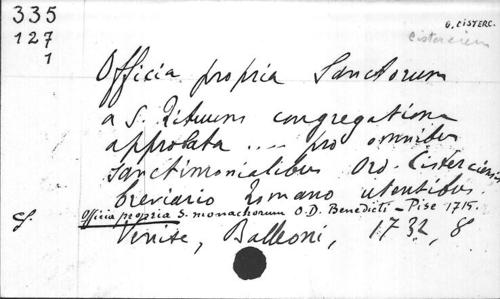 335
127
1
O. CISTERC.
Cisterciens
Officia propria Sanctorum
a S. Rituum congregatione
approbata .... pro omnibus
sanctimonialibus Ord. Cisterciensis
breviario Romano utentibus.
cf. Officia propria S. monachorum O.D. Benedicti - Pise 1715.
Venise, Balleoni, 1732, 8°